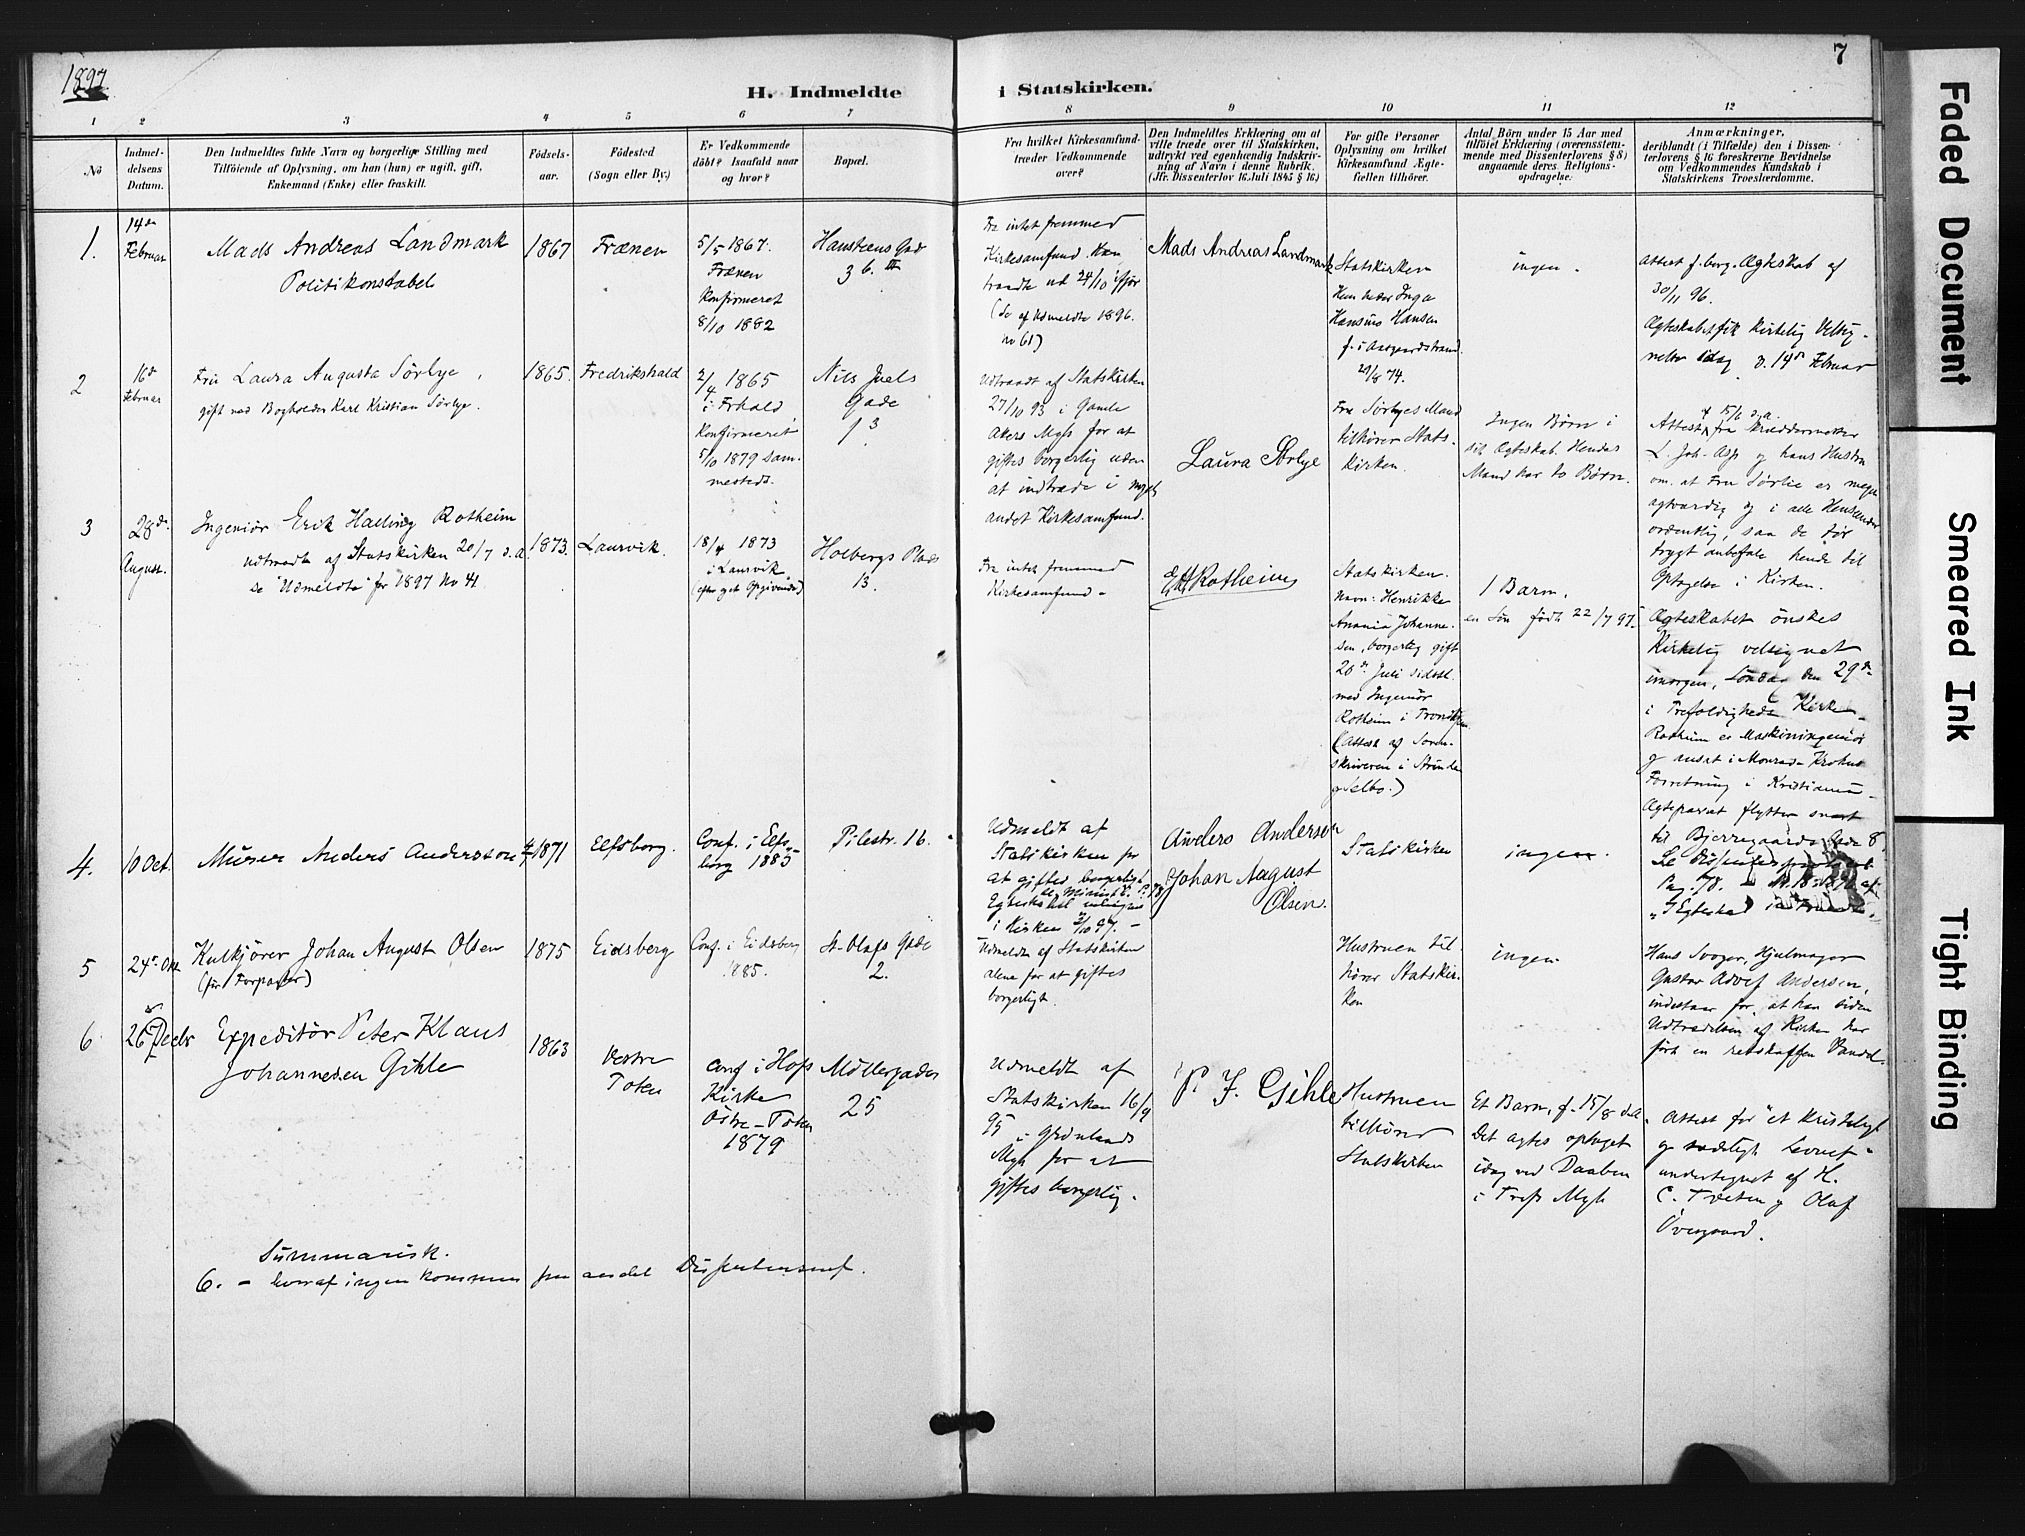 1897
7
H. Indmeldte i Statskirken.
1 2 3 4 5 6 7 8 9 10 11 12
No
Indmel-
delsens
Datum.
Den Indmeldtes fulde Navn og borgerlige Stilling med
Tilföiende af Oplysning, om han (hun) er ugift, gift,
Enkemand (Enke) eller fraskilt.
Födsels-
aar.
Födested
(Sogn eller By.)
Er Vedkommende
döbt? Isaafald naar
og hvor?
Bopæl.
Fra hvilket Kirkesamfund-
træder Vedkommende
over?
Den Indmeldtes Erklæring om at
ville træde over til Statskirken,
udtrykt ved egenhændig Indskriv-
ning af Navn i denne Rubrik.
(Jfr. Dissenterlov 16. Juli 1845 § 16)
For gifte Personer
Oplysning om hvilket
Kirkesamfund Ægte-
fællen tilhörer.
Antal Börn under 15 Aar med
tilföiet Erklæring (overensstem-
mende med Dissenterlovens § 8)
angaaende deres Religions-
opdragelse.
Anmærkninger,
deriblandt (i Tilfælde) den i Dissen-
terlovens § 16 foreskrevne Bevidnelse
om Vedkommendes Kundskab i
Statskirkens Troeslærdomme.
1.
14de
Februar
Mads Andreas Landmark
Politikonstabel
1867
Frænen
5/5 1867.
Frænen
Konfirmeret
8/10 1882
Hansteens Gad
36. III
Fra intet fremmed
Kirkesamfund. Han
traadte ud 24/10 ifjor
(Se af Udmeldte 1896.
No 61)
Mads Andreas Landmark
Statskirken
Hun heder Inga
Hansine Hansen
f. i Aasgaardstrand.
29/8 74.
ingen.
Attest f. borg. Ægteskab af
30/11 96.
Ægteskabet fik kirkelig Velsig-
nelse idag d. 14de Februar
2
16d
Februar
Fru Laura Augusta Sörbye,
gift med Bogholder Karl Kristian Sörbye.
1865.
Fredrikshald
2/4 1865
i Frhald
Konfirmeret
5/10 1879 sam-
mesteds.
Nils Juels
Gade
13
Udtraadt af Statskirken
27/10 93 i Gamle
Akers Mgh for at
giftes borgerlig uden
at indtræde i noget
andet Kirkesamfund.
Laura Sörbye
Fru Sörbyes Mand
tilhörer Stats-
kirken.
Ingen Börn i
sit Ægteskab. Hendes
Mand har to Börn.
Attest fra Skræddermester
L. Joh. Asp og hans Hustru
om at Fru Sörbie er meget
agtværdig og i alle Henseender
ordentlig, saa de tör
trygt anbefale hende til
Optagelse i Kirken.
3
28de
August.
Ingeniör Erik Halling Rotheim
udtraadt af Statskirken 20/7 d.a.
se "Udmeldte" for 1897 No 41
1873.
Laurvik.
18/4 1873
i Laurvik
Holbergs Plads
13.
Fra intet fremmed
Kirkesamfund-
EH Rotheim
Statskirken.
Navn: Henrikke
Anania Johanne-
sen, borgerlig gift
20de Juli sidstl.
med Ingeniör
Rotheim i Trondhjem
(Attest af Soren-
skriveren i Strinda
og Selbo.)
1 Barn.
en Sön födt 22/7 97.
Ægteskabet önskes
Kirkelig velsignet
imorgen, Söndag den 29de
i Trefoldigheds Kirke.
Rotheim er Maskiningeniör
og ansat i Monrad-Krohns
Forretning i Kristiania-
Ægteparret flytter snart
til Bjerregaards Gade 8.
4.
10 Oct.
Murer Anders Andersson
1871
Elfsborg.
Conf. i Elfs-
borg 1885
Pilestr. 16.
Udmeldt af
Statskirken for
at giftes borgerligt
i Kirken 3/10 97.-
Anders Anderson
Statskirken
ingen.
Pag. 78.
5
24de Okt
Kulkjører Johan August Olsen
(før Forpagter)
1875
Eidsberg
Conf. i Eidsberg
1885.
St. Olafs Gade
2.
Udmeldt af Statskirken
alene for at giftes
borgerligt.
Johan August
Olsen.
Hustruen til-
hörer Statskir-
ken
ingen
Hans Svoger, Hjulmager
Gustav Adolf Andersen,
indestaar for, at han siden
Udtrædelsen af Kirken har
fört en retskaffen Vandel.
6
26 Decbr
Expeditör Peter Klaus
Johannesen Gihle
1863
Vestre
Toten
Conf i Hofs
Kirke
Östre-Toten
1879
Möllergaden
25
Udmeldt af
Statskirken 16/9
95 i Grönlands
Mgh for at
giftes borgerlig.
P. J. Gihle
Hustruen
tilhörer
Statskirken
Et Barn, f. 15/8 d.A.
Det agtes optaget
idag ved Daaben
i Tref. Mgh
Attest for "et kristeligt
og sædeligt Levnet"
undertegnet af H.
C. Tveten og Olaf
Overgaard.
Summarisk.
6. - hvoraf ingen kommen fra andet Dissentersamf.
Faded Document
Smeared Ink
Tight Binding